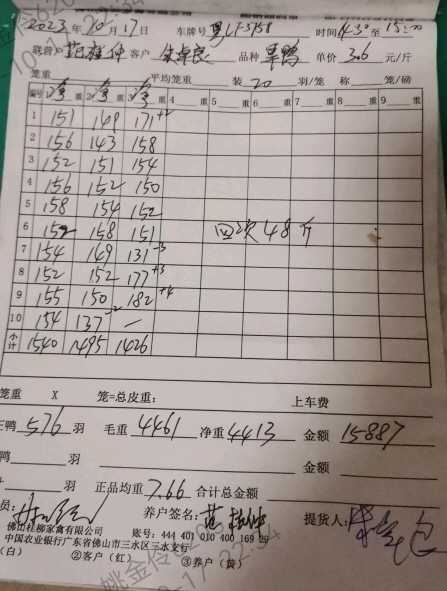 2023年10月17日 车牌号 粤L F3758 时间14:30至15:00
联营户 范桂仲 客户 品种 草鸭 单价 3.6 元/斤
笼重 平均笼重 装 20 羽/笼 称 笼/磅
编号 1 重 2 重 3 重 4 重 5 重 6 重 7 重 8 重 9 重
1 151 149 171 +2
2 156 143 158
3 152 151 154
4 156 152 150
5 158 154 152
6 152 158 151 四次48斤
7 154 149 131 -3
8 152 152 177 +3
9 155 150 182 +4
10 154 137 -2 —
小计 1540 1495 1426
笼重 X 笼=总皮重： 上车费
正鸭 576 羽 毛重 4461 净重 4413 金额 15887
鸭 羽 金额
羽 正品均重 7.66 合计总金额
员： 养户签名： 范桂仲 提货人：
佛山桂柳家禽有限公司 账号：444 401 010 400 169 29
中国农业银行广东省佛山市三水区三水支行
（白） ②客户（红） ③养户（黄）